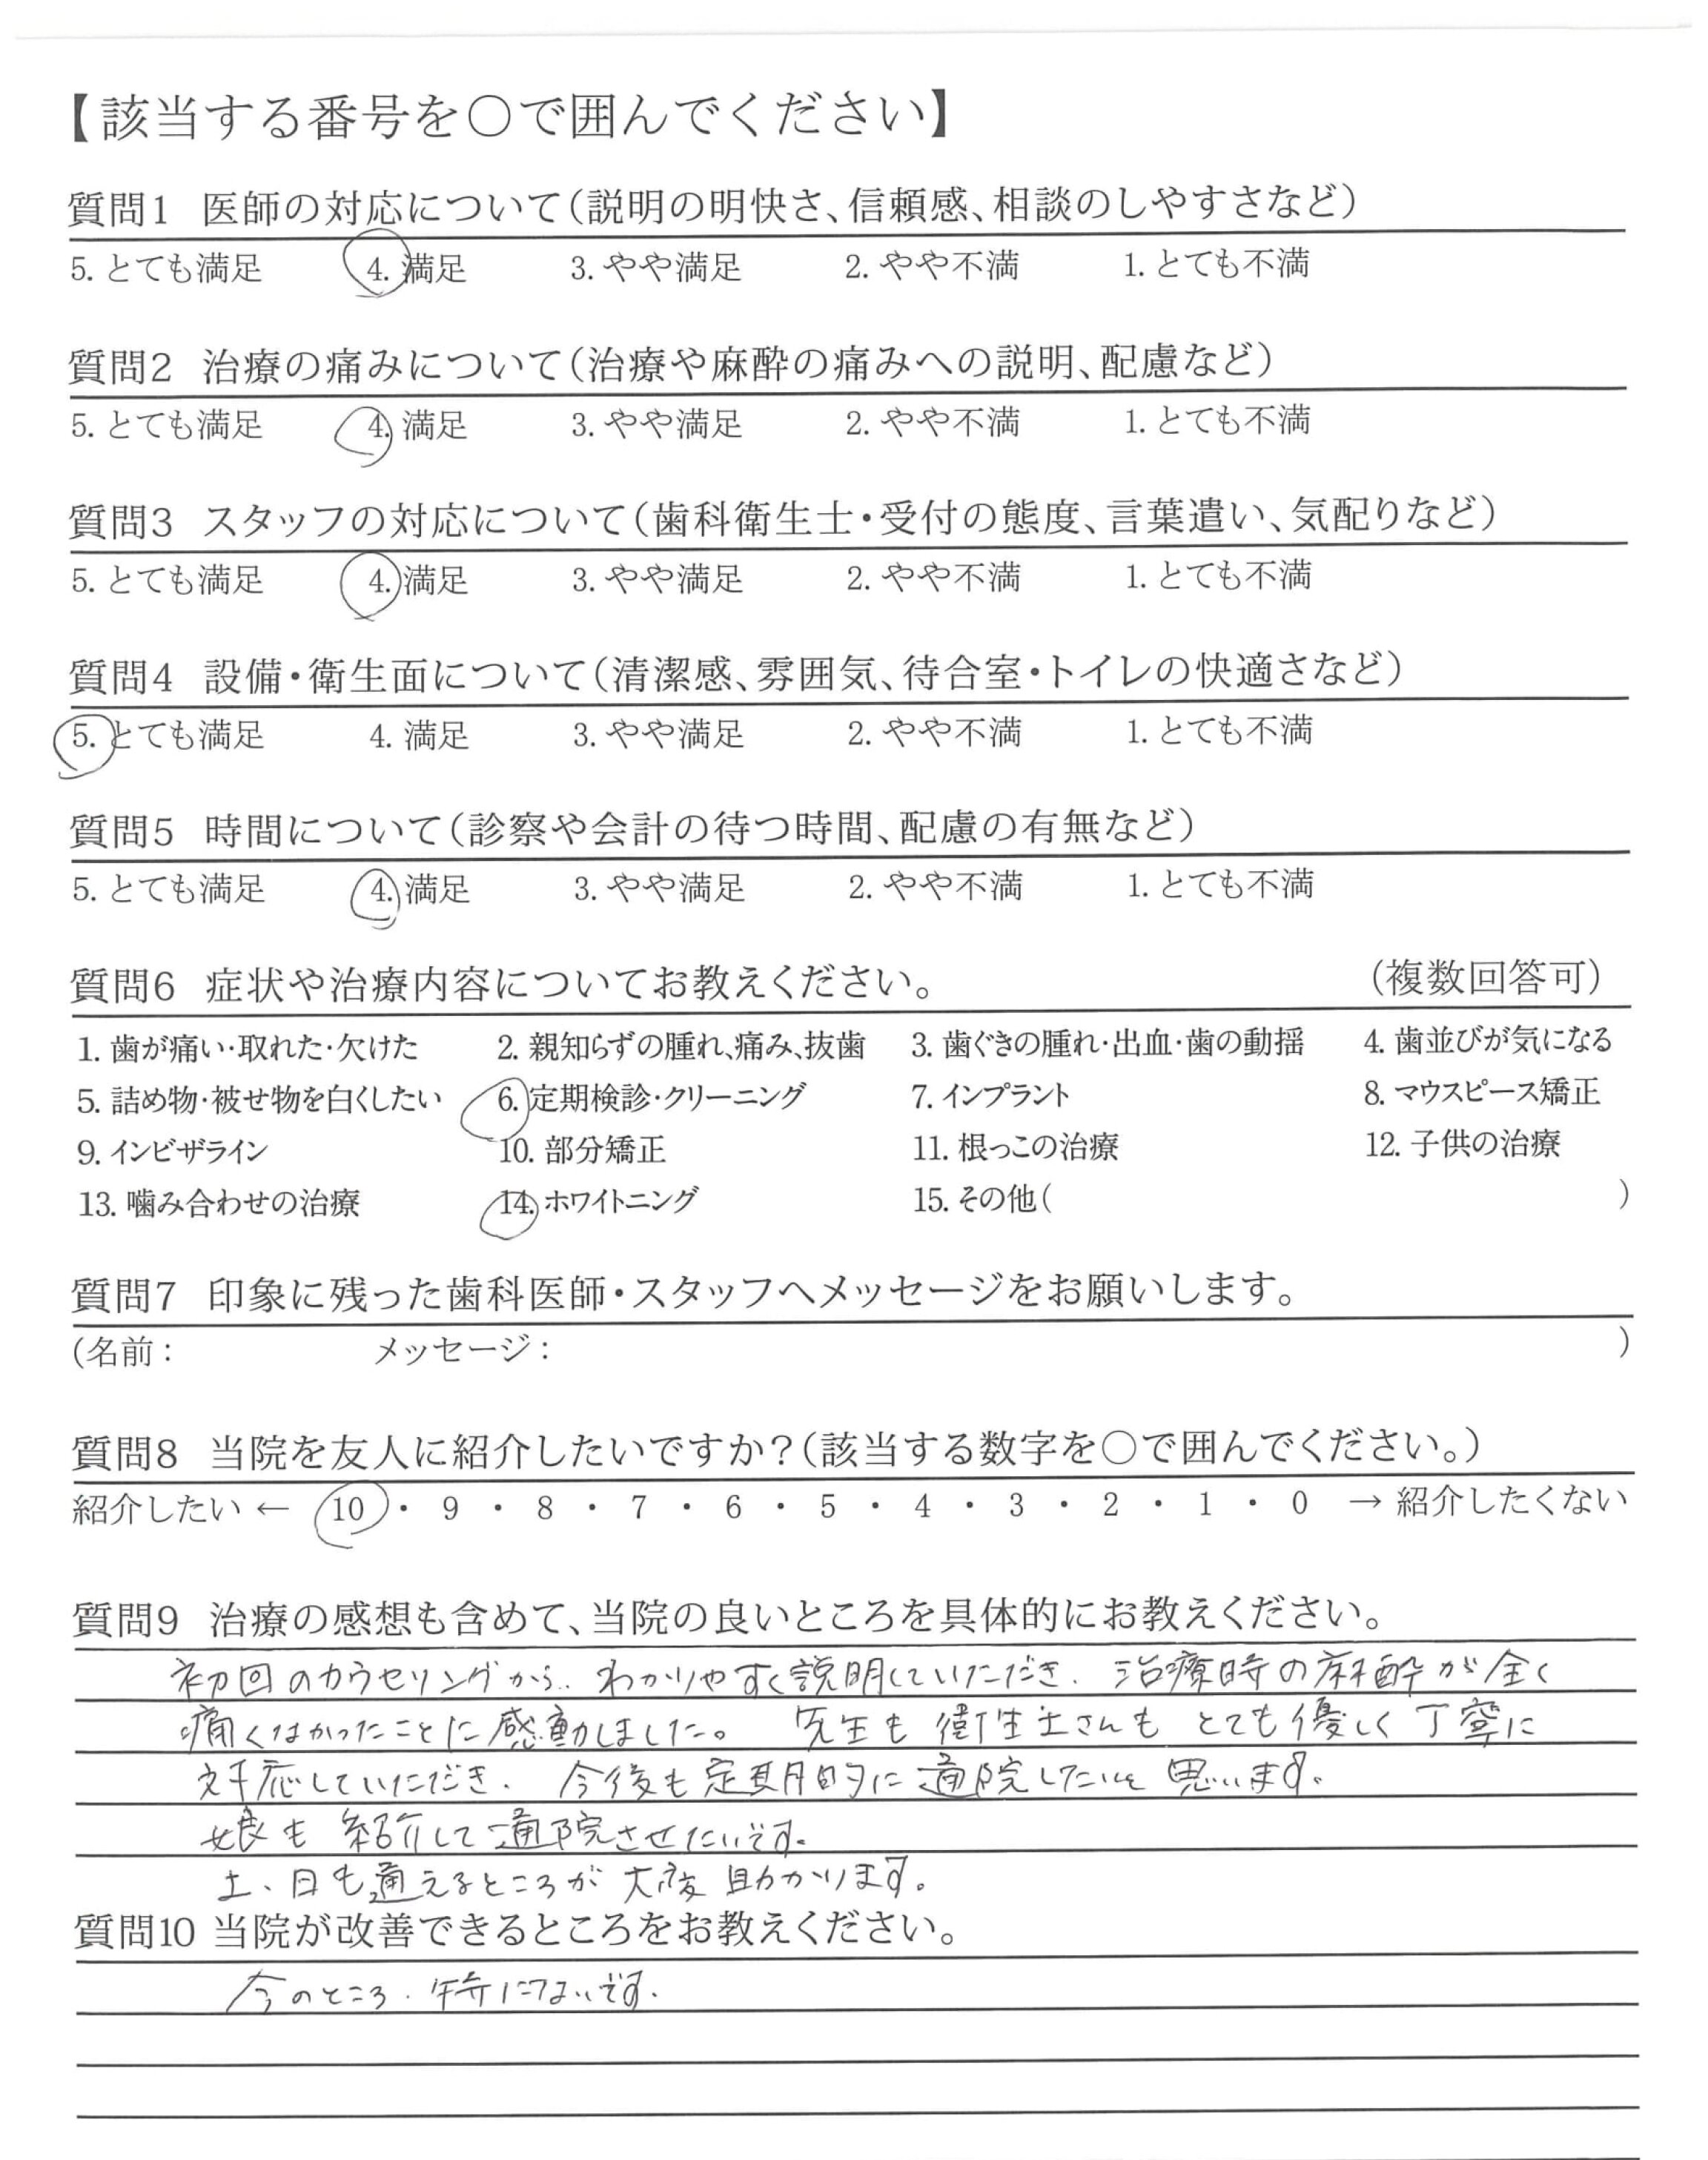 【該当する番号を○で囲んでください】
質問1 医師の対応について(説明の明快さ、信頼感、相談のしやすさなど)
5. とても満足 4. 満足 3. やや満足 2. やや不満 1. とても不満
質問2 治療の痛みについて(治療や麻酔の痛みへの説明、配慮など)
5. とても満足 4. 満足 3. やや満足 2. やや不満 1. とても不満
質問3 スタッフの対応について(歯科衛生士・受付の態度、言葉遣い、気配りなど)
5. とても満足 4. 満足 3. やや満足 2. やや不満 1. とても不満
質問4 設備・衛生面について(清潔感、雰囲気、待合室・トイレの快適さなど)
5. とても満足 4. 満足 3. やや満足 2. やや不満 1. とても不満
質問5 時間について(診察や会計の待つ時間、配慮の有無など)
5. とても満足 4. 満足 3. やや満足 2. やや不満 1. とても不満
質問6 症状や治療内容についてお教えください。 (複数回答可)
1. 歯が痛い・取れた・欠けた 2. 親知らずの腫れ、痛み、抜歯 3. 歯ぐきの腫れ・出血・歯の動揺 4. 歯並びが気になる
5. 詰め物・被せ物を白くしたい 6. 定期検診・クリーニング 7. インプラント 8. マウスピース矯正
9. インビザライン 10. 部分矯正 11. 根っこの治療 12. 子供の治療
13. 噛み合わせの治療 14. ホワイトニング 15. その他( )
質問7 印象に残った歯科医師・スタッフへメッセージをお願いします。
(名前： メッセージ： )
質問8 当院を友人に紹介したいですか？(該当する数字を○で囲んでください。)
紹介したい ← 10 ・ 9 ・ 8 ・ 7 ・ 6 ・ 5 ・ 4 ・ 3 ・ 2 ・ 1 ・ 0 → 紹介したくない
質問9 治療の感想も含めて、当院の良いところを具体的にお教えください。
初回のカウセリングから、わかりやすく説明していただき、治療時の麻酔が全く
痛くなかったことに感動しました。 先生も衛生士さんも とても優しく丁寧に
対応していただき、今後も定期的に通院したいと思います。
娘も紹介して通院させたいです。
土、日も通えるところが大変助かります。
質問10 当院が改善できるところをお教えください。
今のところ、特にないです。